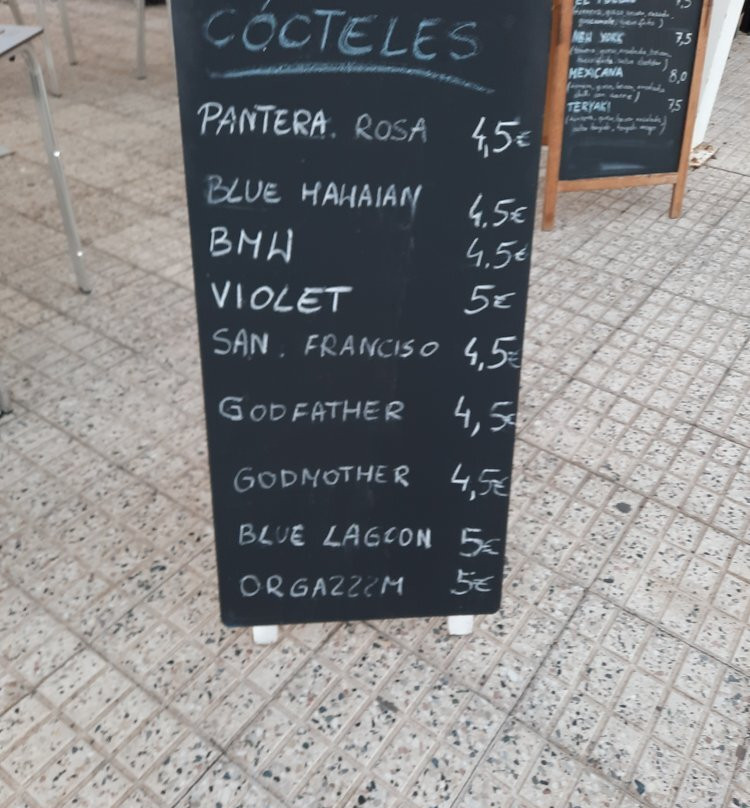 CÓCTELES
PANTERA. ROSA 4,5€
BLUE HAWAIAN 4.5€
BMW 4.5€
VIOLET 5€
SAN. FRANCISO 4,5€
GODFATHER 4,5€
GODMOTHER 4,5€
BLUE LAGOON 5€
ORGAZZZM 5€
7,5
NEW YORK 7,5
MEXICANA 8,0
TERYAKI 7,5